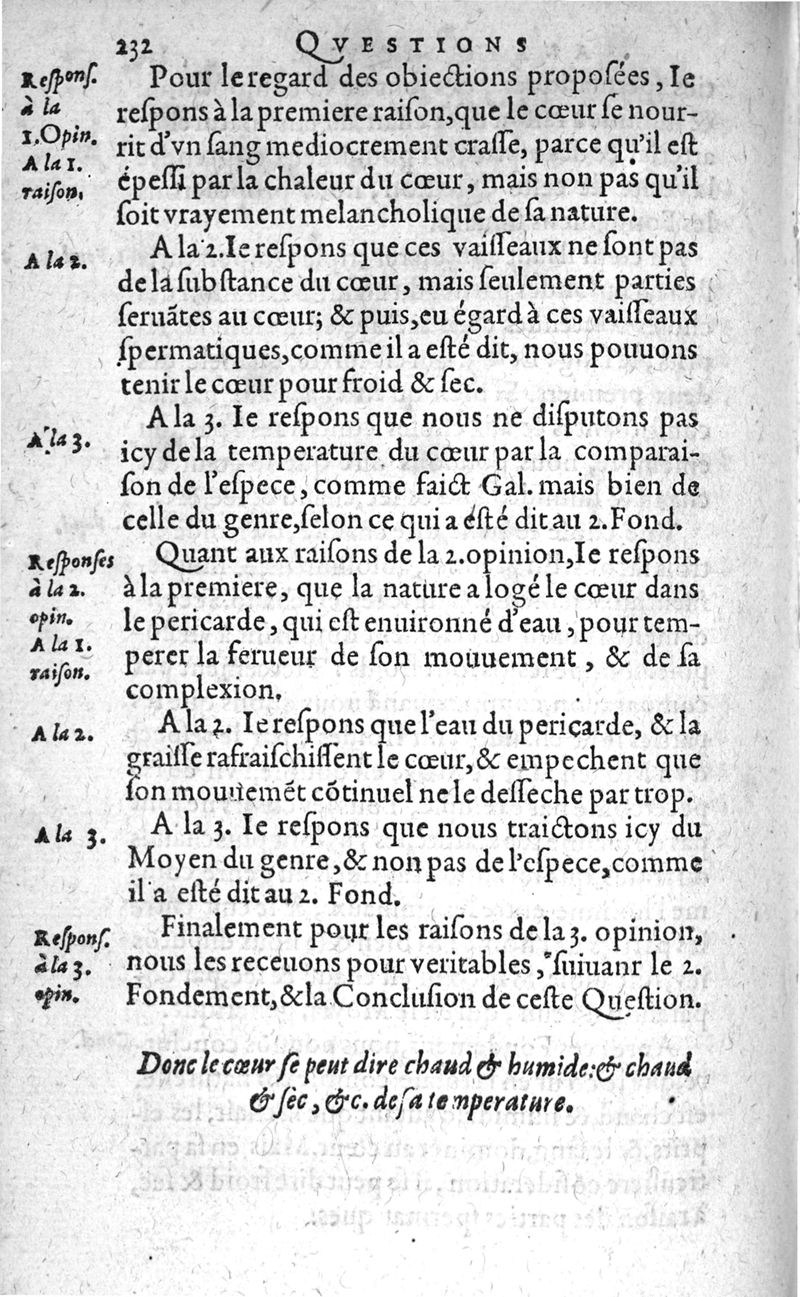 232 QVESTIONS
Reſponſ. à la 1.Opin. A la 1. raiſon.
Pour le regard des obiections propoſées, Ie
reſpons à la premiere raiſon, que le cœur ſe nour-
rit d'vn ſang mediocrement craſſe, parce qu'il eſt
épeſſi par la chaleur du cœur, mais non pas qu'il
ſoit vrayement melancholique de ſa nature.
A la 2.
A la 2. Ie reſpons que ces vaiſſeaux ne ſont pas
de la ſubſtance du cœur, mais ſeulement parties
ſeruãtes au cœur; & puis, eu égard à ces vaiſſeaux
ſpermatiques, comme il a eſté dit, nous pouuons
tenir le cœur pour froid & ſec.
A la 3.
A la 3. Ie reſpons que nous ne diſputons pas
icy de la temperature du cœur par la comparai-
ſon de l'eſpece, comme faict Gal. mais bien de
celle du genre, ſelon ce qui a eſté dit au 2. Fond.
Reſponſes à la 2. opin. A la 1. raiſon.
Quant aux raiſons de la 2. opinion, Ie reſpons
à la premiere, que la nature a logé le cœur dans
le pericarde, qui eſt enuironné d'eau, pour tem-
perer la ferueur de ſon mouuement, & de ſa
complexion.
A la 2.
A la 2. Ie reſpons que l'eau du pericarde, & la
graiſſe rafraiſchiſſent le cœur, & empechent que
ſon mouuemẽt cõtinuel ne le deſſeche par trop.
A la 3.
A la 3. Ie reſpons que nous traictons icy du
Moyen du genre, & non pas de l'eſpece, comme
il a eſté dit au 2. Fond.
Reſponſ. à la 3. opin.
Finalement pour les raiſons de la 3. opinion,
nous les receuons pour veritables, ſuiuanr le 2.
Fondement, & la Concluſion de ceſte Queſtion.
Donc le cœur ſe peut dire chaud & humide: & chaud
& ſec, &c. de ſa temperature.